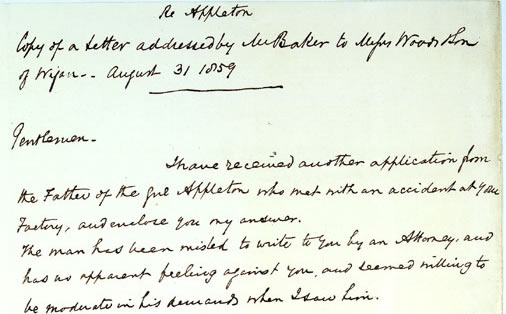 Re Appleton
Copy of a Letter addressed by Mr Baker to Messrs Woods & Son
of Wigan - August 31 1859
Gentlemen -
I have received another application from
the Father of the girl Appleton who met with an accident at your
Factory, and enclose you my answer.
The man has been misled to write to you by an Attorney, and
has no apparent feeling against you, and seemed willing to
be moderate in his demands when I saw him.